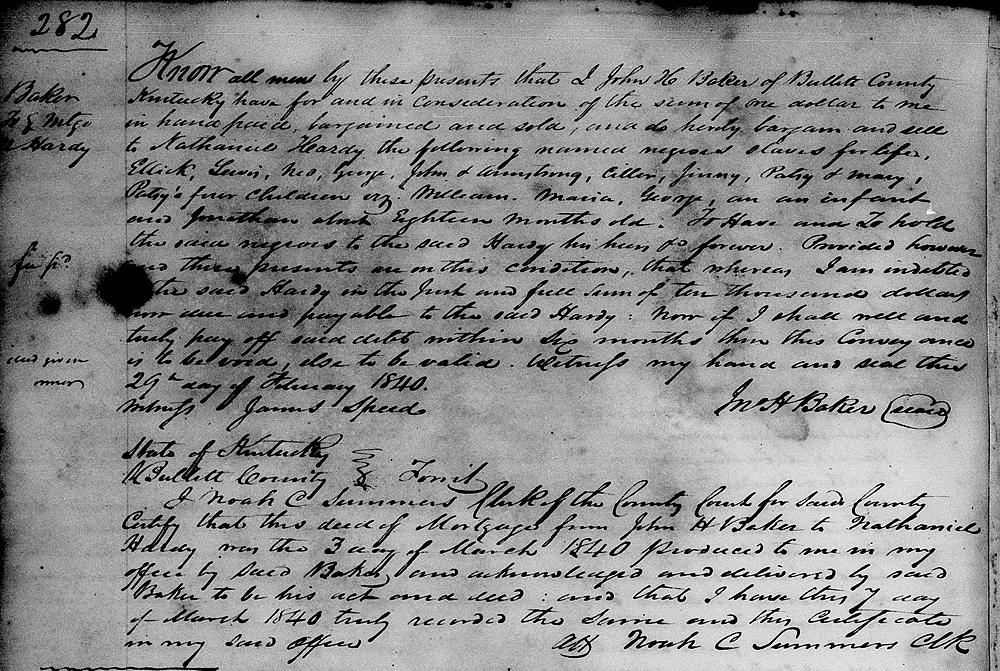 282
Baker
To } Mtge
Hardy
Know all men by these presents that I John H Baker of Bullitt County
Kentucky have for and in consideration of the sum of one dollar to me
in hand paid, bargained and sold, and do hereby bargain and sell
to Nathaniel Hardy the following named negroes slaves for life,
Ellick, Lewis, Ned, George, John & Armstrong, Ciller, Jinny, Patsy & Mary,
Patsy's four children viz. William. Maria, George, an an infant
and Jonathan about Eighteen months old. To Have and To hold
the said negroes to the said Hardy his heirs &c forever. Provided however
and these presents are on this condition, that whereas I am indebted
the said Hardy in the Just and full Sum of ten thousand dollars
now due and payable to the said Hardy: Now if I shall well and
truly pay off said debt within Six months then this Conveyance
is to be void, else to be valid. Witness my hand and seal this
29th day of February 1840.
Witness James Speed
Jno H Baker (seal)
fee pd.
deed given
State of Kentucky
Bullitt County } Towit
I Noah C Summers Clerk of the County Court for said County
Certify that this deed of Mortgage from John H Baker to Nathaniel
Hardy was the 3 day of March 1840 produced to me in my
office by said Baker and acknowledged and delivered by said
Baker to be his act and deed: and that I have this 7 day
of March 1840 truly recorded the same and this Certificate
in my said office
Att Noah C Summers Clk